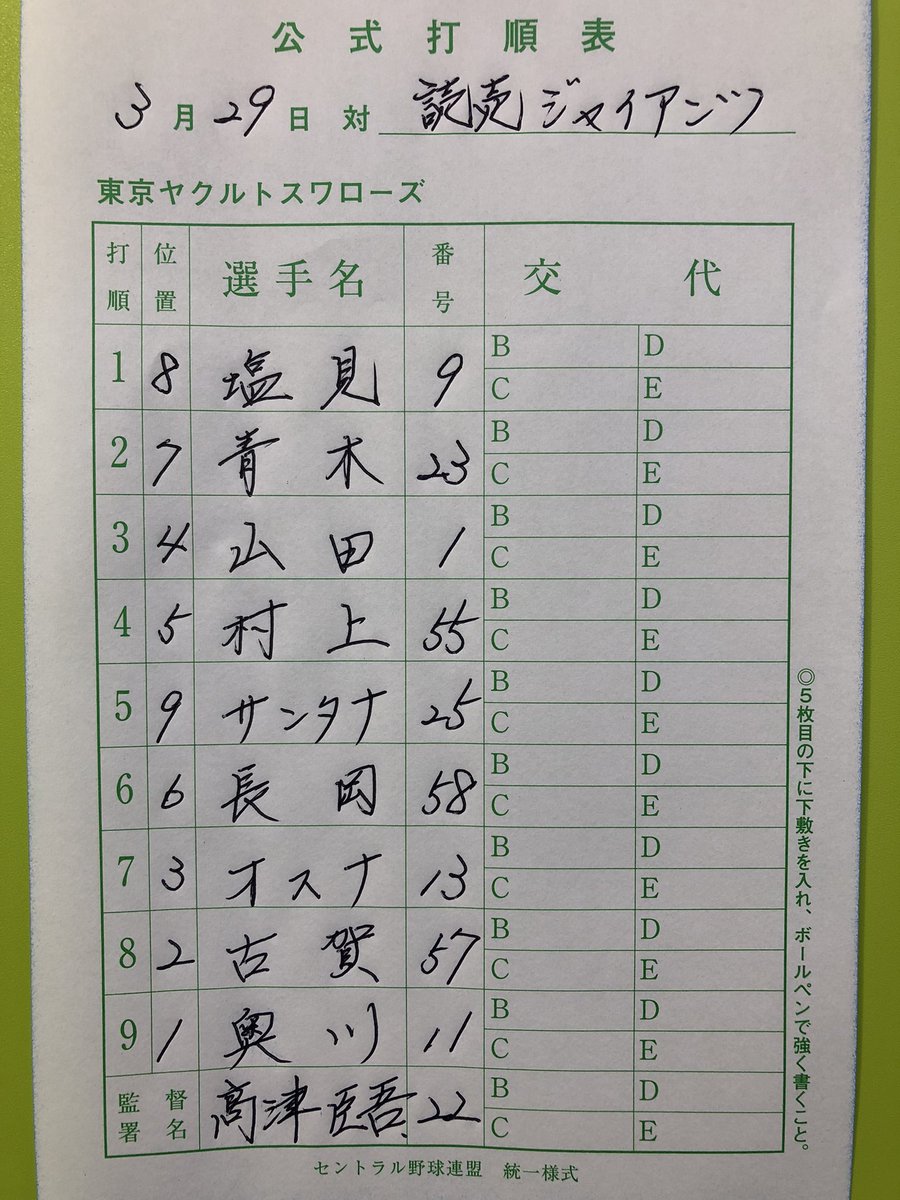 公式打順表
3月29日 対 読売ジャイアンツ
東京ヤクルトスワローズ
打順 位置 選手名 番号 交代
1 8 塩見 9 B D
C E
2 7 青木 23 B D
C E
3 4 山田 1 B D
C E
4 5 村上 55 B D
C E
5 9 サンタナ 25 B D
C E
6 6 長岡 58 B D
C E
7 3 オスナ 13 B D
C E
8 2 古賀 57 B D
C E
9 1 奥川 11 B D
C E
監督署名 高津臣吾 22 B D
C E
◎5枚目の下に下敷きを入れ、ボールペンで強く書くこと。
セントラル野球連盟 統一様式